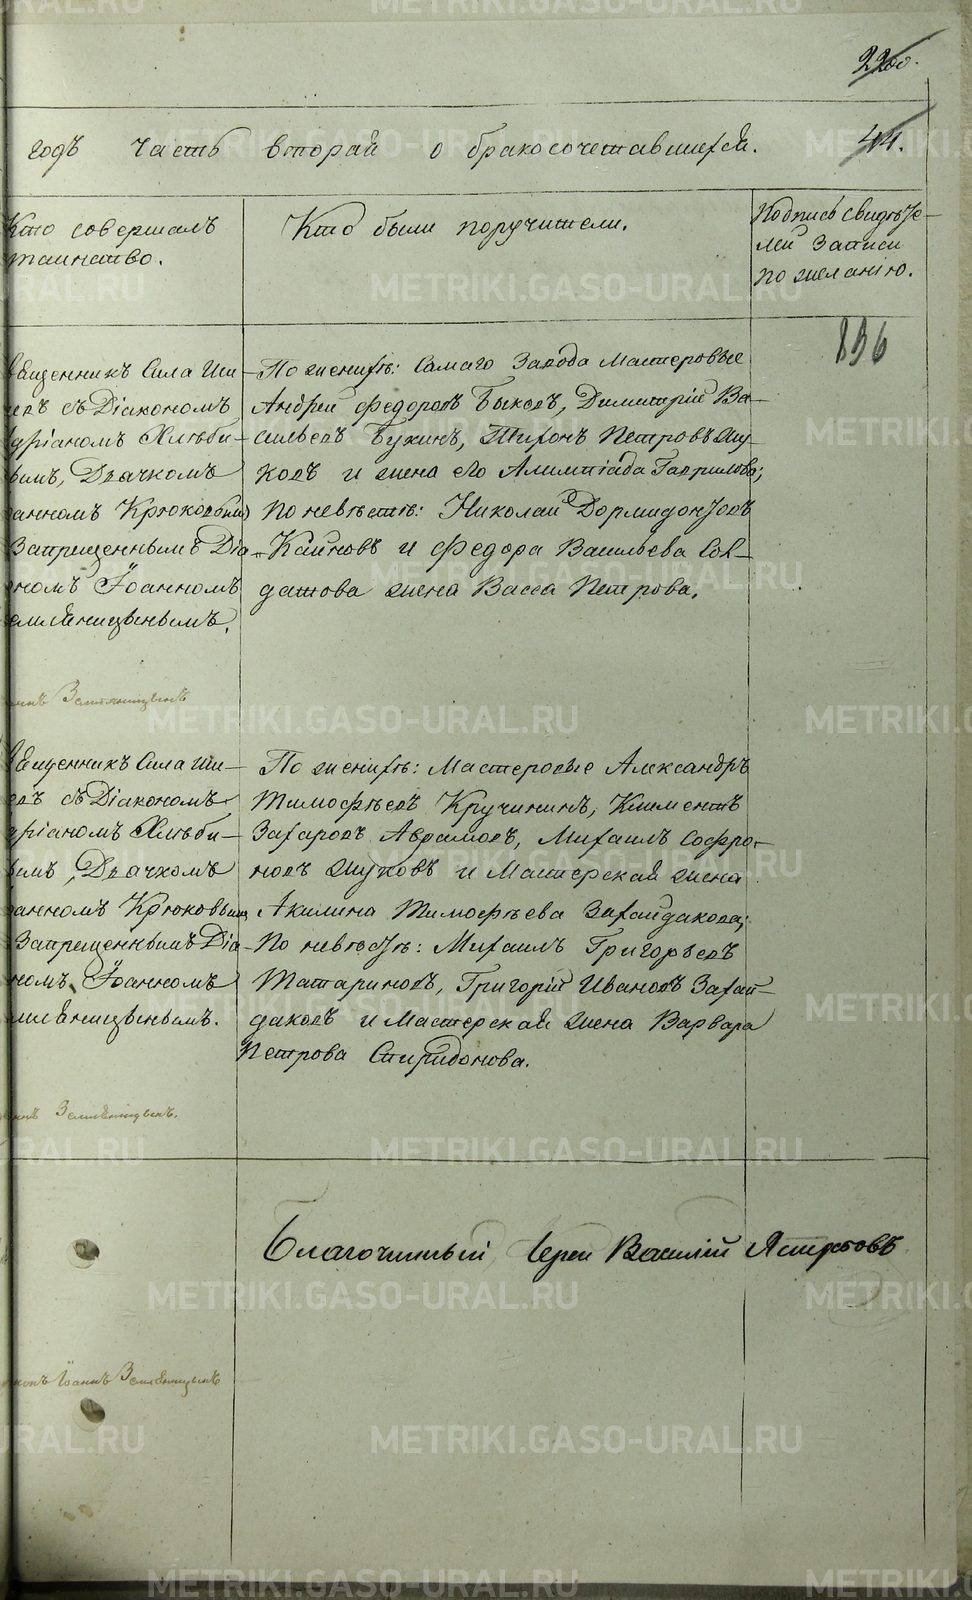 годъ часть вторая о бракосочетавшихся.
44.
Кто совершалъ
таинство.
Кто были поручители.
Подпись свидѣте-
лей записи
по желанію.
836
Священникъ Сила Ши-
съ Діакономъ
Хлѣби-
вымъ, Дьячкомъ
Іоанномъ Крюковымъ
Запрещеннымъ Діа-
кономъ Іоанномъ
Землянициннымъ.
По женихѣ: Самаго Завода Мастеровые
Андрей Федоровъ Быковъ, Димитрій Ва-
сильевъ Бухинъ, Тихонъ Петровъ Жу-
ковъ и жена его Алимпіада Гаврилова;
По невѣстѣ: Николай Дормидонтовъ
Каиновъ и Федора Васильева Сол-
датова жена Васса Петрова.
Священникъ Сила Ши-
съ Діакономъ
Хлѣби-
вымъ, Дьячкомъ
Іоанномъ Крюковымъ
Запрещеннымъ Діа-
кономъ Іоанномъ
Землянициннымъ.
По женихѣ: Мастеровые Александръ
Тимофѣевъ Кручининъ, Климентъ
Захаровъ Аврамовъ, Михаилъ Софро-
новъ Жуковъ и Мастерская жена
Акилина Тимофѣева Захайдакова;
По невѣстѣ: Михаилъ Григорьевъ
Татариновъ, Григорій Ивановъ Захай-
даковъ и Мастерская жена Варвара
Петрова Спиридонова.
Благочинный Іерей Василій Ястребовъ
Іоаннъ
METRIKI.GASO-URAL.RU